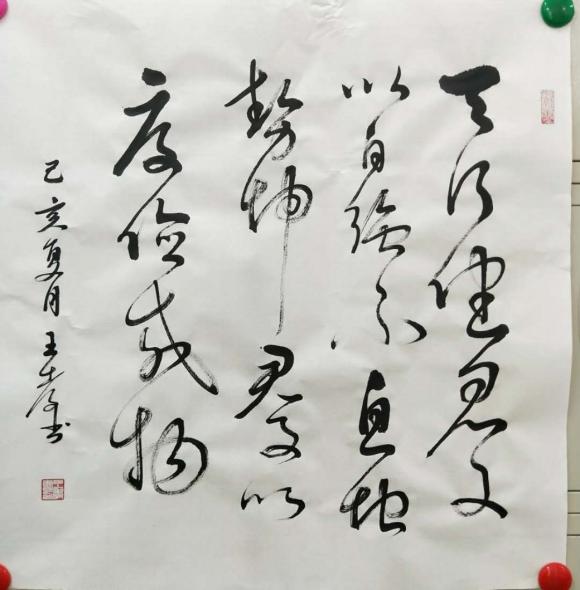 天行健君子
以自强不息地
势坤君子以
厚德载物
己亥夏月王书